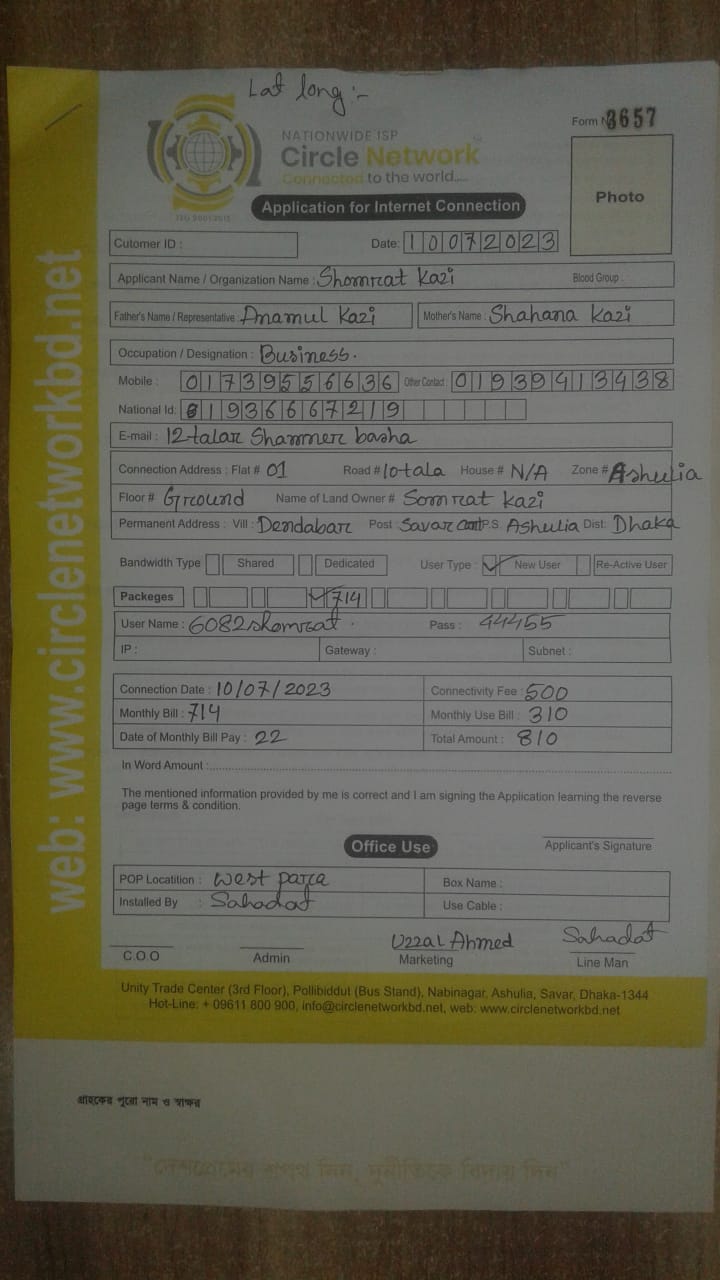 Lat long :-
Form No 3657
NATIONWIDE ISP
Circle Network
Connected to the world.....
ISO 9001:2015
Photo
Application for Internet Connection
Cutomer ID :
Date: 10072023
Applicant Name / Organization Name : Shomrat Kazi Blood Group :
Father's Name / Representative : Anamul Kazi Mother's Name : Shahana Kazi
Occupation / Designation : Business.
Mobile : 01739556636 Other Contact : 01939413438
National Id: 81936667219
E-mail : 12talar Shammer basha
Connection Address : Flat # 01 Road # 10tala House # N/A Zone # Ashulia
Floor # Ground Name of Land Owner # Somrat Kazi
Permanent Address : Vill : Dendabar Post : Savar Cant P.S. Ashulia Dist: Dhaka
Bandwidth Type Shared Dedicated User Type : New User Re-Active User
Packeges 714
User Name : 6082shomrat. Pass : 44455
IP : Gateway : Subnet :
Connection Date : 10/07/2023 Connectivity Fee : 500
Monthly Bill : 714 Monthly Use Bill : 310
Date of Monthly Bill Pay : 22 Total Amount : 810
In Word Amount :
The mentioned information provided by me is correct and I am signing the Application learning the reverse
page terms & condition.
Office Use
Applicant's Signature
POP Locatition : West para Box Name :
Installed By : Sahadat Use Cable :
Uzzal Ahmed Sahadat
C.O.O Admin Marketing Line Man
Unity Trade Center (3rd Floor), Pollibiddut (Bus Stand), Nabinagar, Ashulia, Savar, Dhaka-1344
Hot-Line: + 09611 800 900, info@circlenetworkbd.net, web: www.circlenetworkbd.net
web: www.circlenetworkbd.net
গ্রাহকের পুরো নাম ও স্বাক্ষর
"দেশপ্রেমের শপথ নিন, দুর্নীতিকে বিদায় দিন"